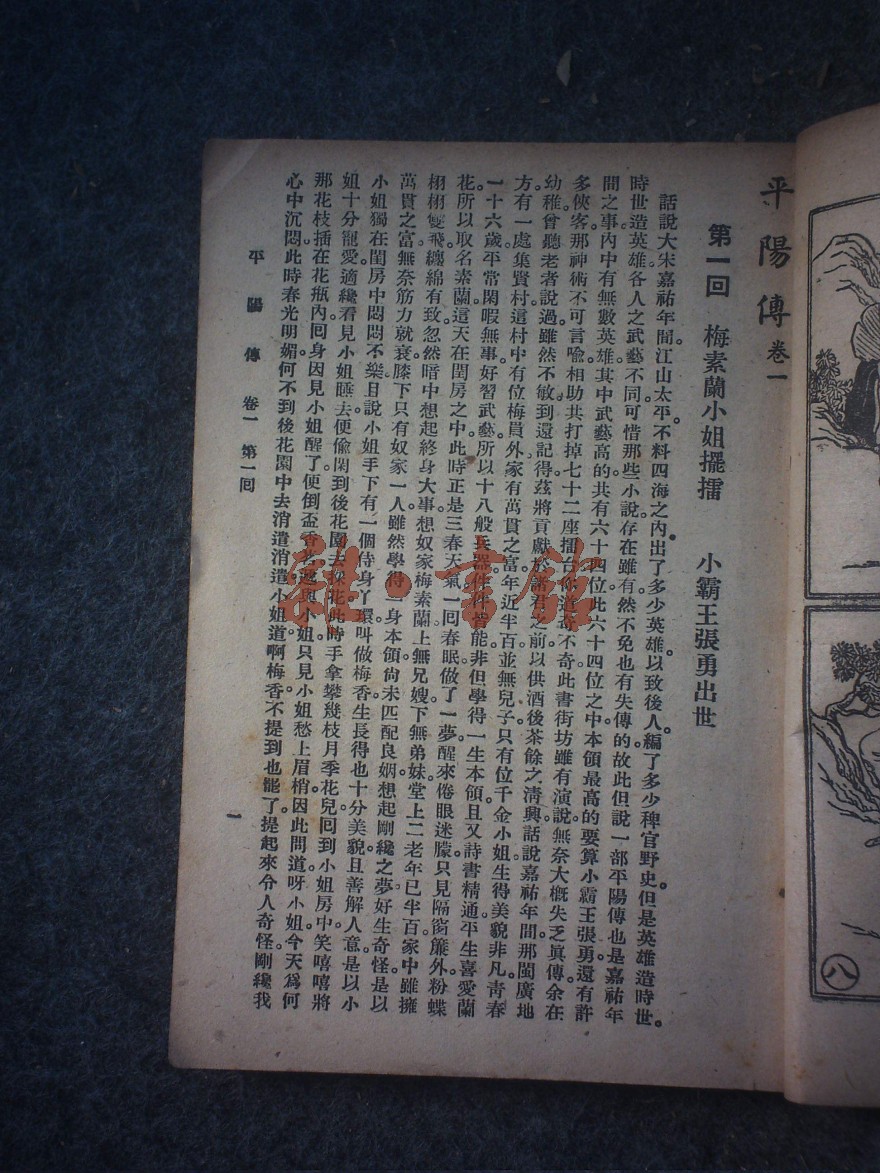 平陽傳 卷一
第一回 梅素蘭小姐擺擂 小霸王張勇出世
話說大宋嘉祐年間。江山太平。不料四海之內出了多少英雄以致後人。編了多少稗官野史。但是英雄造時世。
時世造英雄各人之武藝不同。可惜那些小說。存在雖有。然不免也有失傳的故此但說一部平陽傳也是嘉祐年
間之事。內中有無數英雄。其中武藝高的。共有六十四位。此六十四位之中。本領最高的。要算小霸王張勇。還有許
多俠客。那神術不可言喻。相助共打掉七十二座擂台。不奇。此書街坊雖有演說。無奈大概失乏眞傳。余在
幼稚。曾聽老者說過。雖然不敏。到還記得。茲將貢獻於諸君之前。以供酒後茶餘之清興。話說嘉祐年間。那閩廣地
方。有一處集賢村。這村中有位梅員外。家有萬貫之富。年近半百。並無兒子。只有位千金小姐。生得美貌非凡。靑春
一十六歲。平常閑暇無事。好習武藝。所以十八般兵器。件件皆能。非但學得一生本領。且又詩書精通。平生喜愛蘭
花。所以取名素蘭。這天在閨房之中。此時正是三春天氣。一回春眠。做了一夢。醒來倦眼迷朦。只見隔窗簾外。粉蝶
栩栩雙飛。纏綿有致。忽然暗中想起終身大事。想奴家梅素蘭。上無兄嫂。下無弟妹。堂上二老。年已半百。家中雖擁
萬貫之富。無奈筋力就衰。膝下只有奴家一人。雖然學得一身本領。尙未匹配良姻。想起剛纔之夢。好生奇怪。是以
小姐獨在閨房中。悶悶不樂。且說小姐手下有一個侍身丫環。叫做梅香。生長得也十分美貌。且善解人意。是以小
姐十分寵愛。適纔看見小姐睡去。便偷閑到後花園去採花。此時手拿攀幾枝月季花兒。囘到小姐房中。笑嘻嘻將
那花枝插在花瓶內。囘身因見小姐醒了。便倒盃香茗。遞與小姐。只見小姐愁上眉梢。因此問道。呀小姐。今天爲何
心中沉悶。此時春光明媚。何不到後花園中去消遣消遣。小姐道。啊梅香。不提到也罷了。提起來令人奇怪。剛纔我
平陽傳 卷一 第一囘
一
八
雜·書館